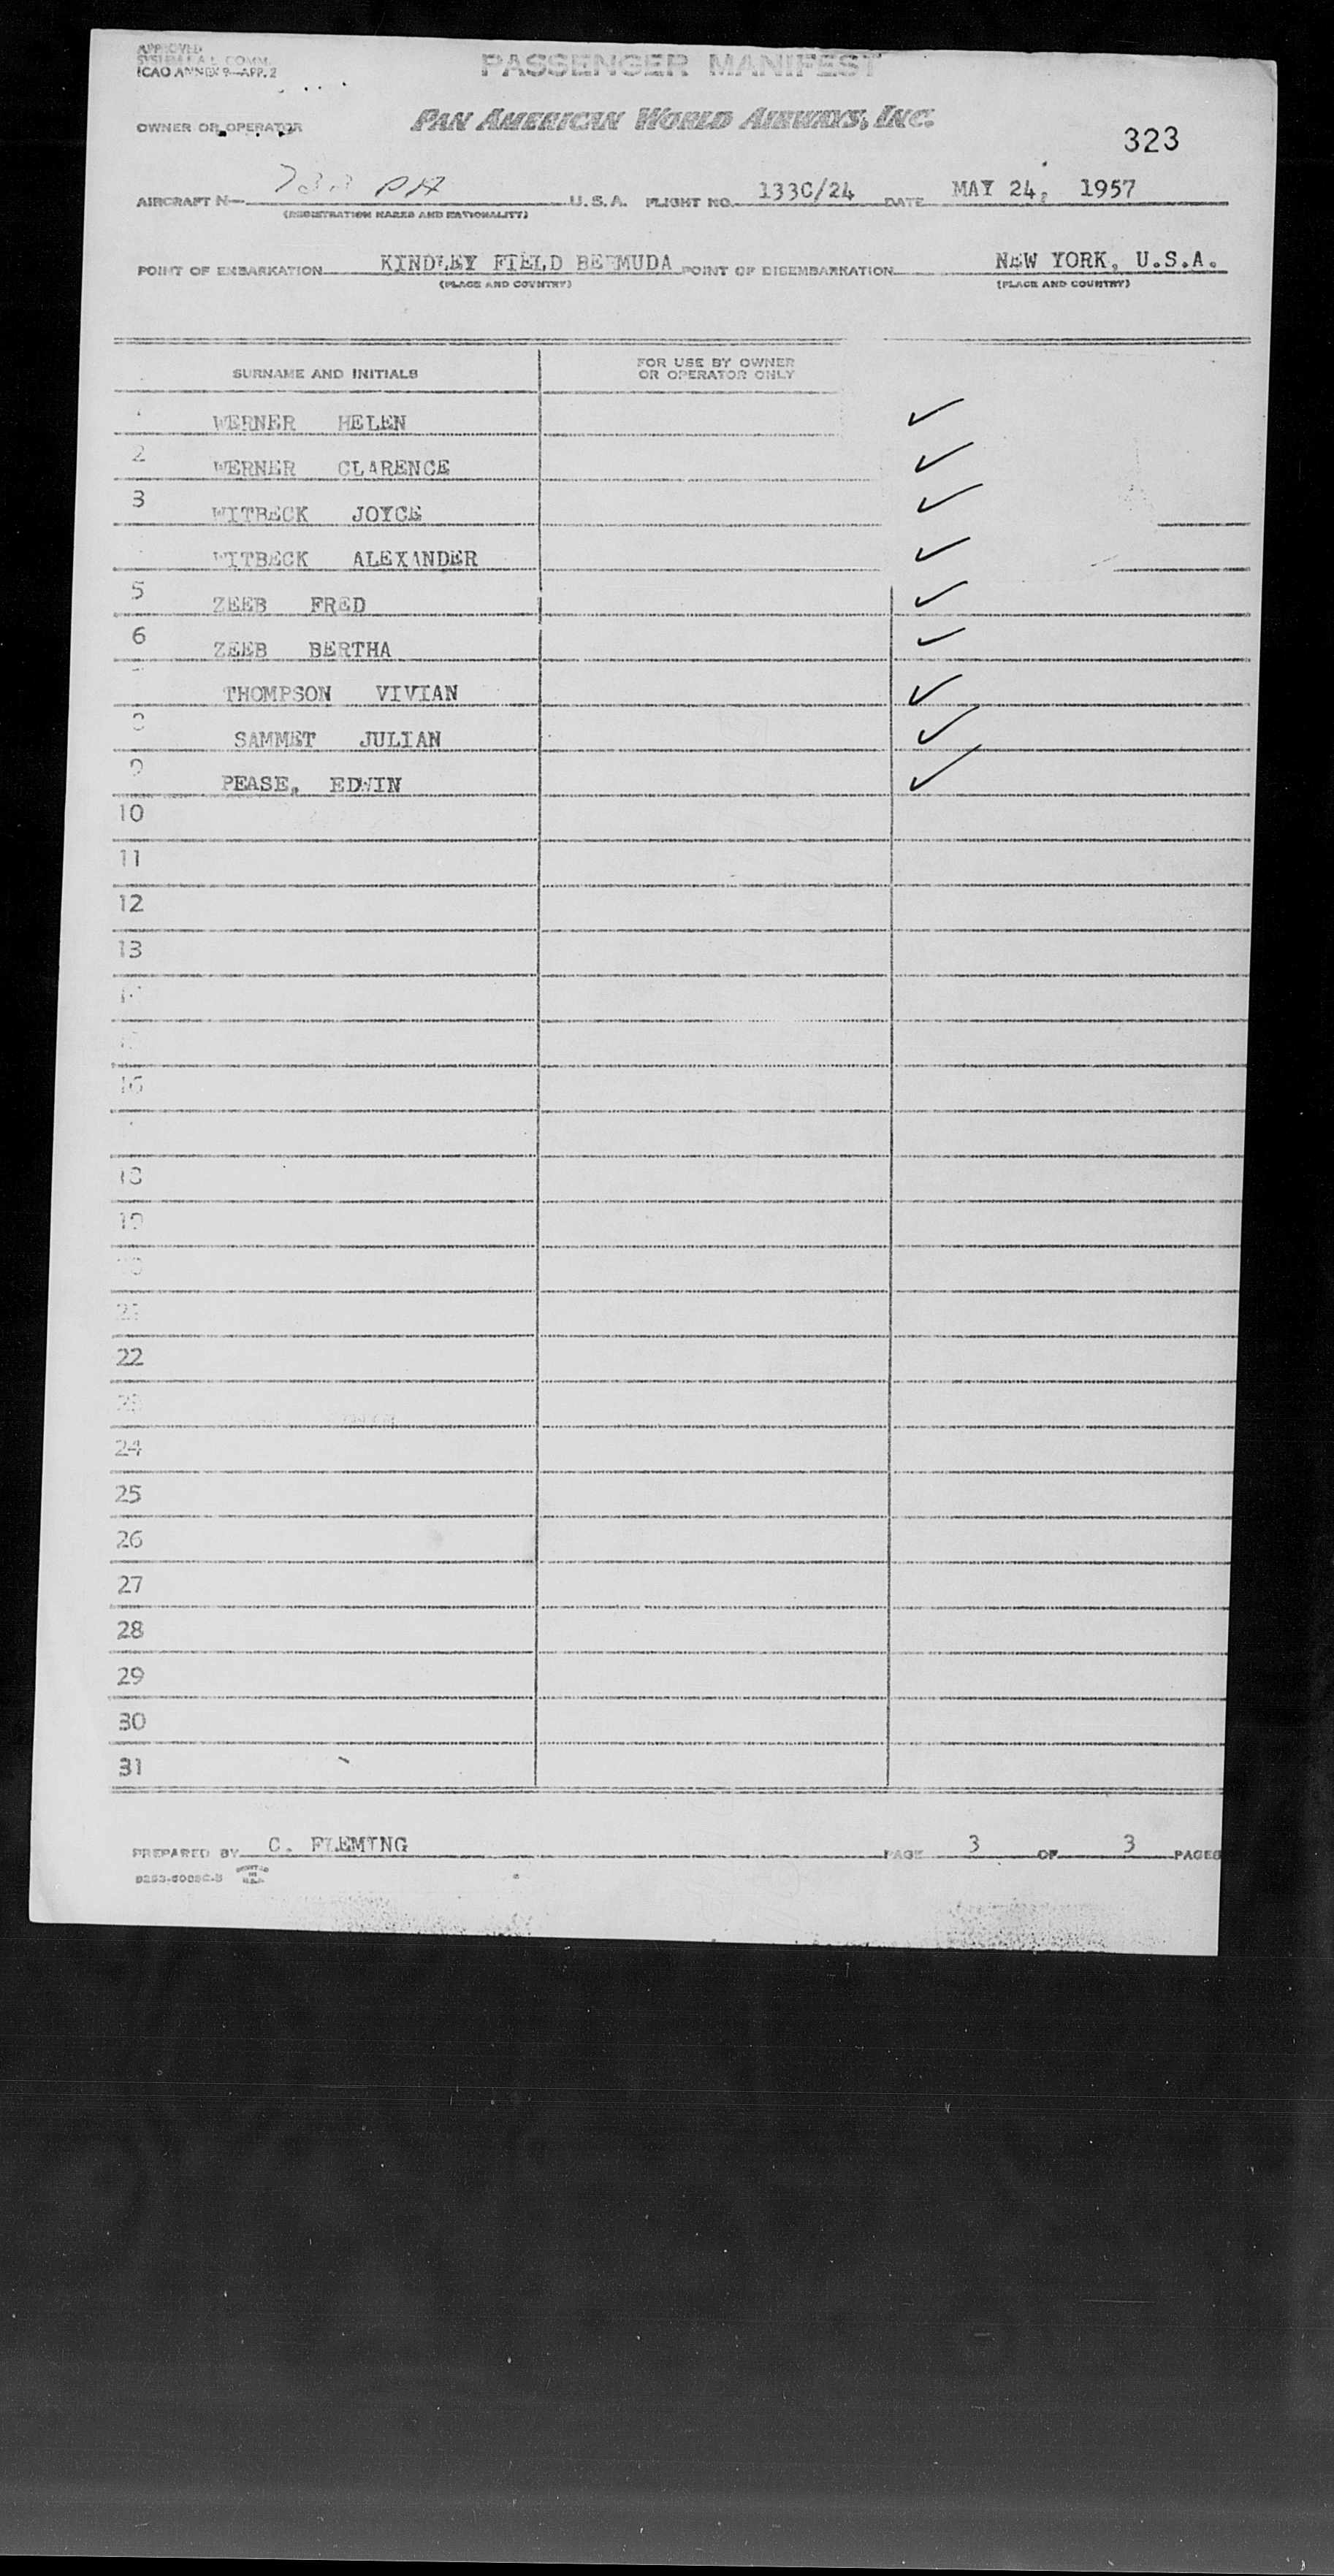 APPROVED
SYSTEM L.A.L. COMM.
ICAO ANNEX 9—APP. 2
PASSENGER MANIFEST
OWNER OR OPERATOR PAN AMERICAN WORLD AIRWAYS, INC.
323
AIRCRAFT N— U. S. A. FLIGHT NO. 133C/24 DATE MAY 24, 1957
(REGISTRATION MARKS AND NATIONALITY)
POINT OF EMBARKATION KINDLEY FIELD BERMUDA POINT OF DISEMBARKATION NEW YORK, U.S.A.
(PLACE AND COUNTRY) (PLACE AND COUNTRY)
SURNAME AND INITIALS FOR USE BY OWNER
OR OPERATOR ONLY
WERNER HELEN ✓
2 WERNER CLARENCE ✓
3 WITBECK JOYCE ✓
WITBECK ALEXANDER ✓
5 ZEEB FRED ✓
6 ZEEB BERTHA ✓
THOMPSON VIVIAN ✓
8 SAMMET JULIAN ✓
9 PEASE, EDWIN ✓
10
11
12
13
14
16
18
19
20
21
22
23
24
25
26
27
28
29
30
31
PREPARED BY C. FLEMING PAGE 3 OF 3 PAGES
PRINTED
IN
U.S.A.